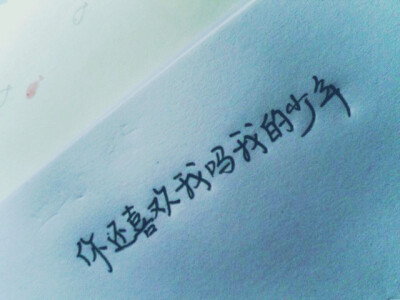 你还喜欢我吗我的少年